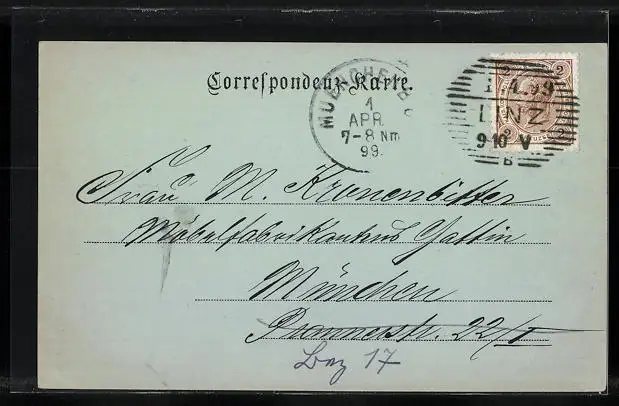 Correspondenz-Karte.
MUENCHEN
1
APR.
7-8 Nm
99.
1.4.99
LINZ
9-10 V
B
2 2
2 2
Frau M. Kronenbitter
Möbelfabrikantens Gattin
München
Prannerstr. 22/I
Bay 17